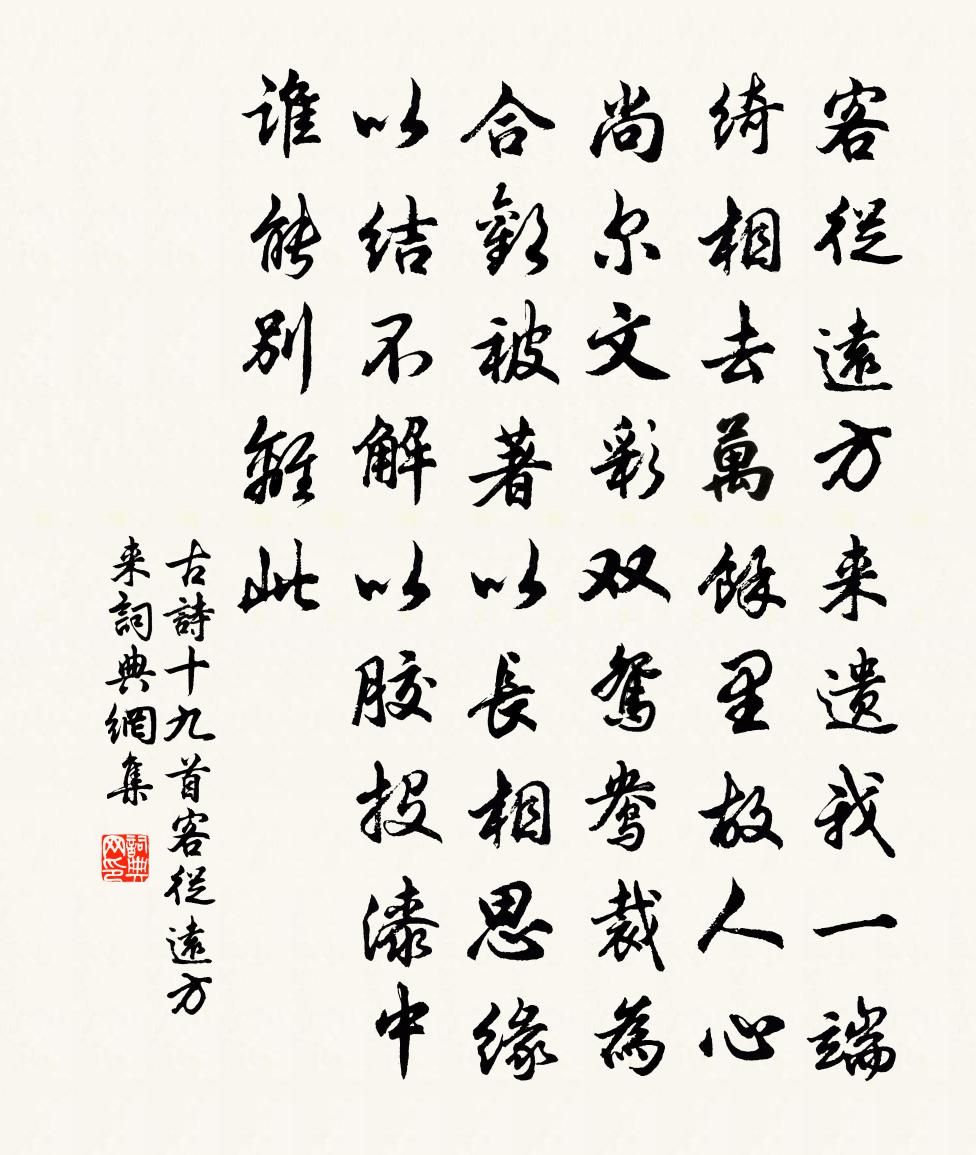 客従遠方来遗我一端
綺相去萬餘里故人心
尚尔文彩双鴛鴦裁為
合歡被著以長相思缘
以结不解以胶投漆中
谁能别離此
古詩十九首客従遠方
来詞典網集
詞典网印